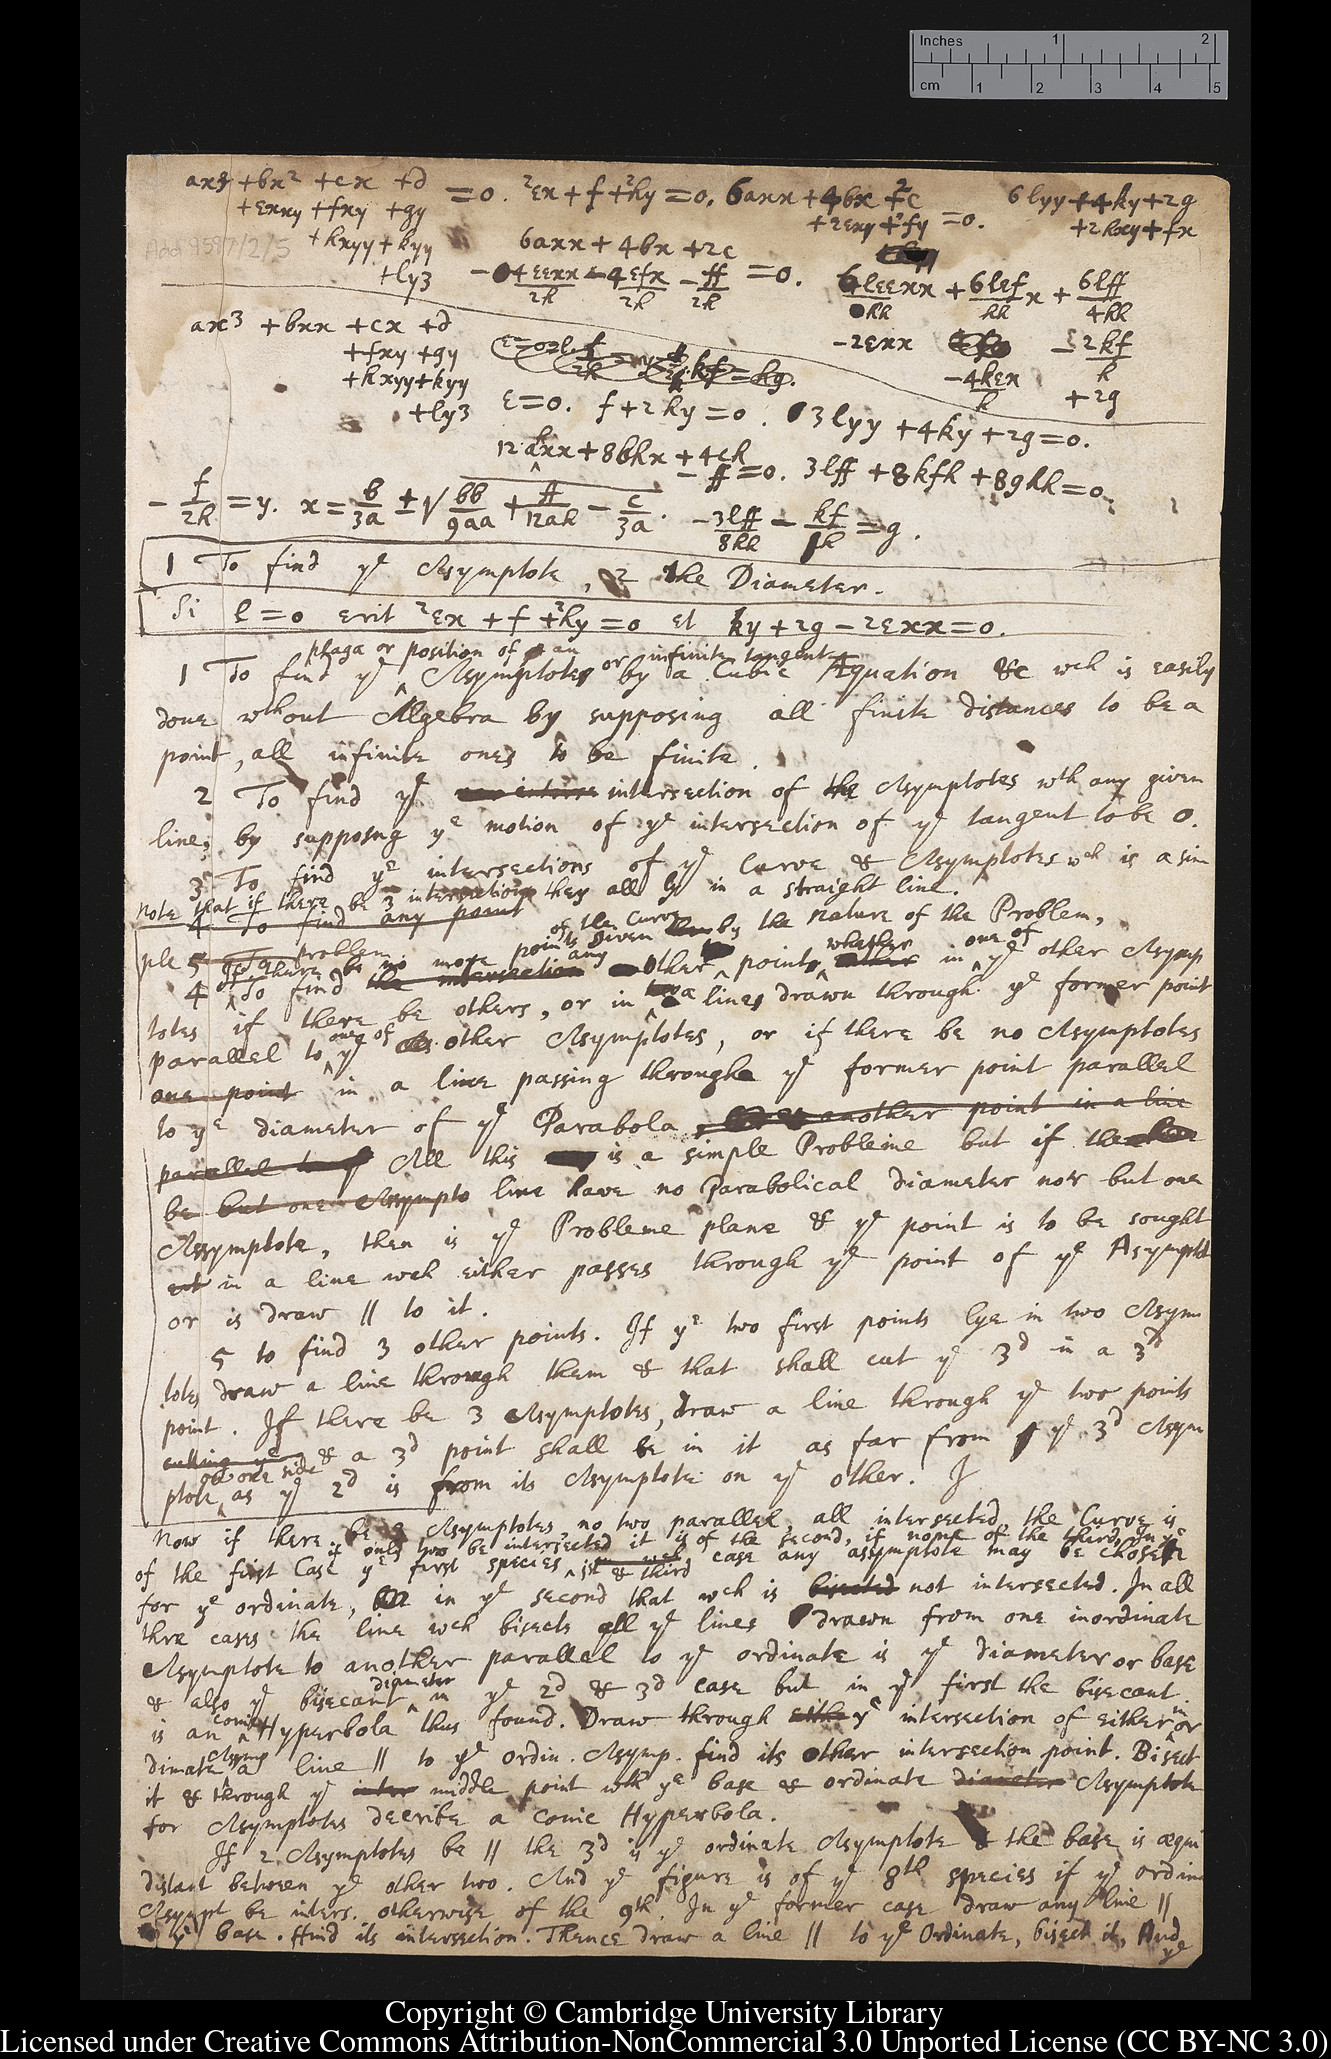 Inches 1 2
cm 1 2 3 4 5
ax3 + bx2 + cx + d
+ εxxy + fxy + gy
+ hxyy + kyy
+ ly3
= 0. 2εx + f + 2hy = 0. 6axx + 4bx + 2c
+ 2εxy + 2fy = 0.
6lyy + 4ky + 2g
+ 2hxy + fx
Add 9597/2/5
6axx + 4bx + 2c
- 4εεxx/2h - 4εfx/2h - ff/2h = 0.
6lεεxx/hh + 6lεf/hh x + 6lff/4hh
- 2εxx - 2kf/h
- 4kεx/h + 2g
ax3 + bxx + cx + d
+ fxy + gy
+ hxyy + kyy
+ ly3
ε = 0. f + 2hy = 0. 3lyy + 4ky + 2g = 0.
12ahxx + 8bhx + 4ch
- ff = 0. 3lff + 8kfh + 8ghh = 0.
- f/2h = y. x = b/3a ± √ bb/9aa + ff/12ah - c/3a. - 3lff/8hh - kf/h = g.
1 To find ye Asymptote, 2 the Diameter.
Si l = 0 erit 2εx + f + 2hy = 0 et ky + 2g - 2εxx = 0.
plaga or position of an or infinite tangent
1 To find ye Asymptotes by a Cubic Æquation &c wch is easily
done wthout Algebra by supposing all finite distances to be a
point, all infinite ones to be finite.
2 To find ye intersection of the Asymptotes wth any given
line; by supposng ye motion of ye intersection of ye tangent to be 0.
3 To find ye intersections of ye Curve & Asymptotes wch is a sim
note that if there be 3 intersections they all ly in a straight line.
4 To find any point
of the Curve given by the nature of the Problem,
ple problem
5 If there be no more points any whether one of
4 To find the intersection other points in ye other Asymp
totes if there be others, or in a lines drawn through ye former point
parallel to one of ye other Asymptotes, or if there be no Asymptotes
one point in a line passing through ye former point parallel
to ye diameter of ye Parabola, another point in a line
parallel to ye All this is a simple Probleme but if the
be but one Assympto line have no Parabolical diameter nor but one
Assymptote, then is ye Probleme plane & ye point is to be sought
in a line wch either passes through ye point of ye Asymptot
or is draw || to it.
5 to find 3 other points. If ye two first points lye in two Asymp
totes draw a line through them & that shall cut ye 3d in a 3d
point. If there be 3 Asymptotes, draw a line through ye two points
cutting ye & a 3d point shall be in it as far from ye 3d Asym
on one side
ptote as ye 2d is from its Asymptote on ye other. If
Now if there be 3 Asymptotes, no two parallel, all intersected, the Curve is
if only two be intersected it is of the second, if none of the third, in ye
of the first Case ye first species 1st & third case any assymptote may be chosen
for ye ordinate, in ye second that wch is bisected not intersected. In all
thre cases the line wch bisects all ye lines drawn from one inordinate
Asymptote to another parallel to ye ordinate is ye diameter or base
diameter
& also ye bisecant in ye 2d & 3d case but in ye first the bisecant
conic
is an Hyperbola thus found. Draw through ye intersection of either inor
Asymp
dinate a line || to ye ordin. Asymp. find its other intersection point. Bisect
it & through ye middle point wth ye base & ordinate diameter Asymptote
for Asymptotes decribe a conic Hyperbola.
If 2 Asymptotes be || the 3d is ye ordinate Asymptote & the base is æqui
distant between ye other two. And ye figure is of ye 8th species if ye ordin
Asympt be inters. otherwise of the 9th. In ye former case draw any line ||
ye base. find its intersection. Thence draw a line || to ye Ordinate, bisect it, And
ye
Copyright © Cambridge University Library
Licensed under Creative Commons Attribution-NonCommercial 3.0 Unported License (CC BY-NC 3.0)